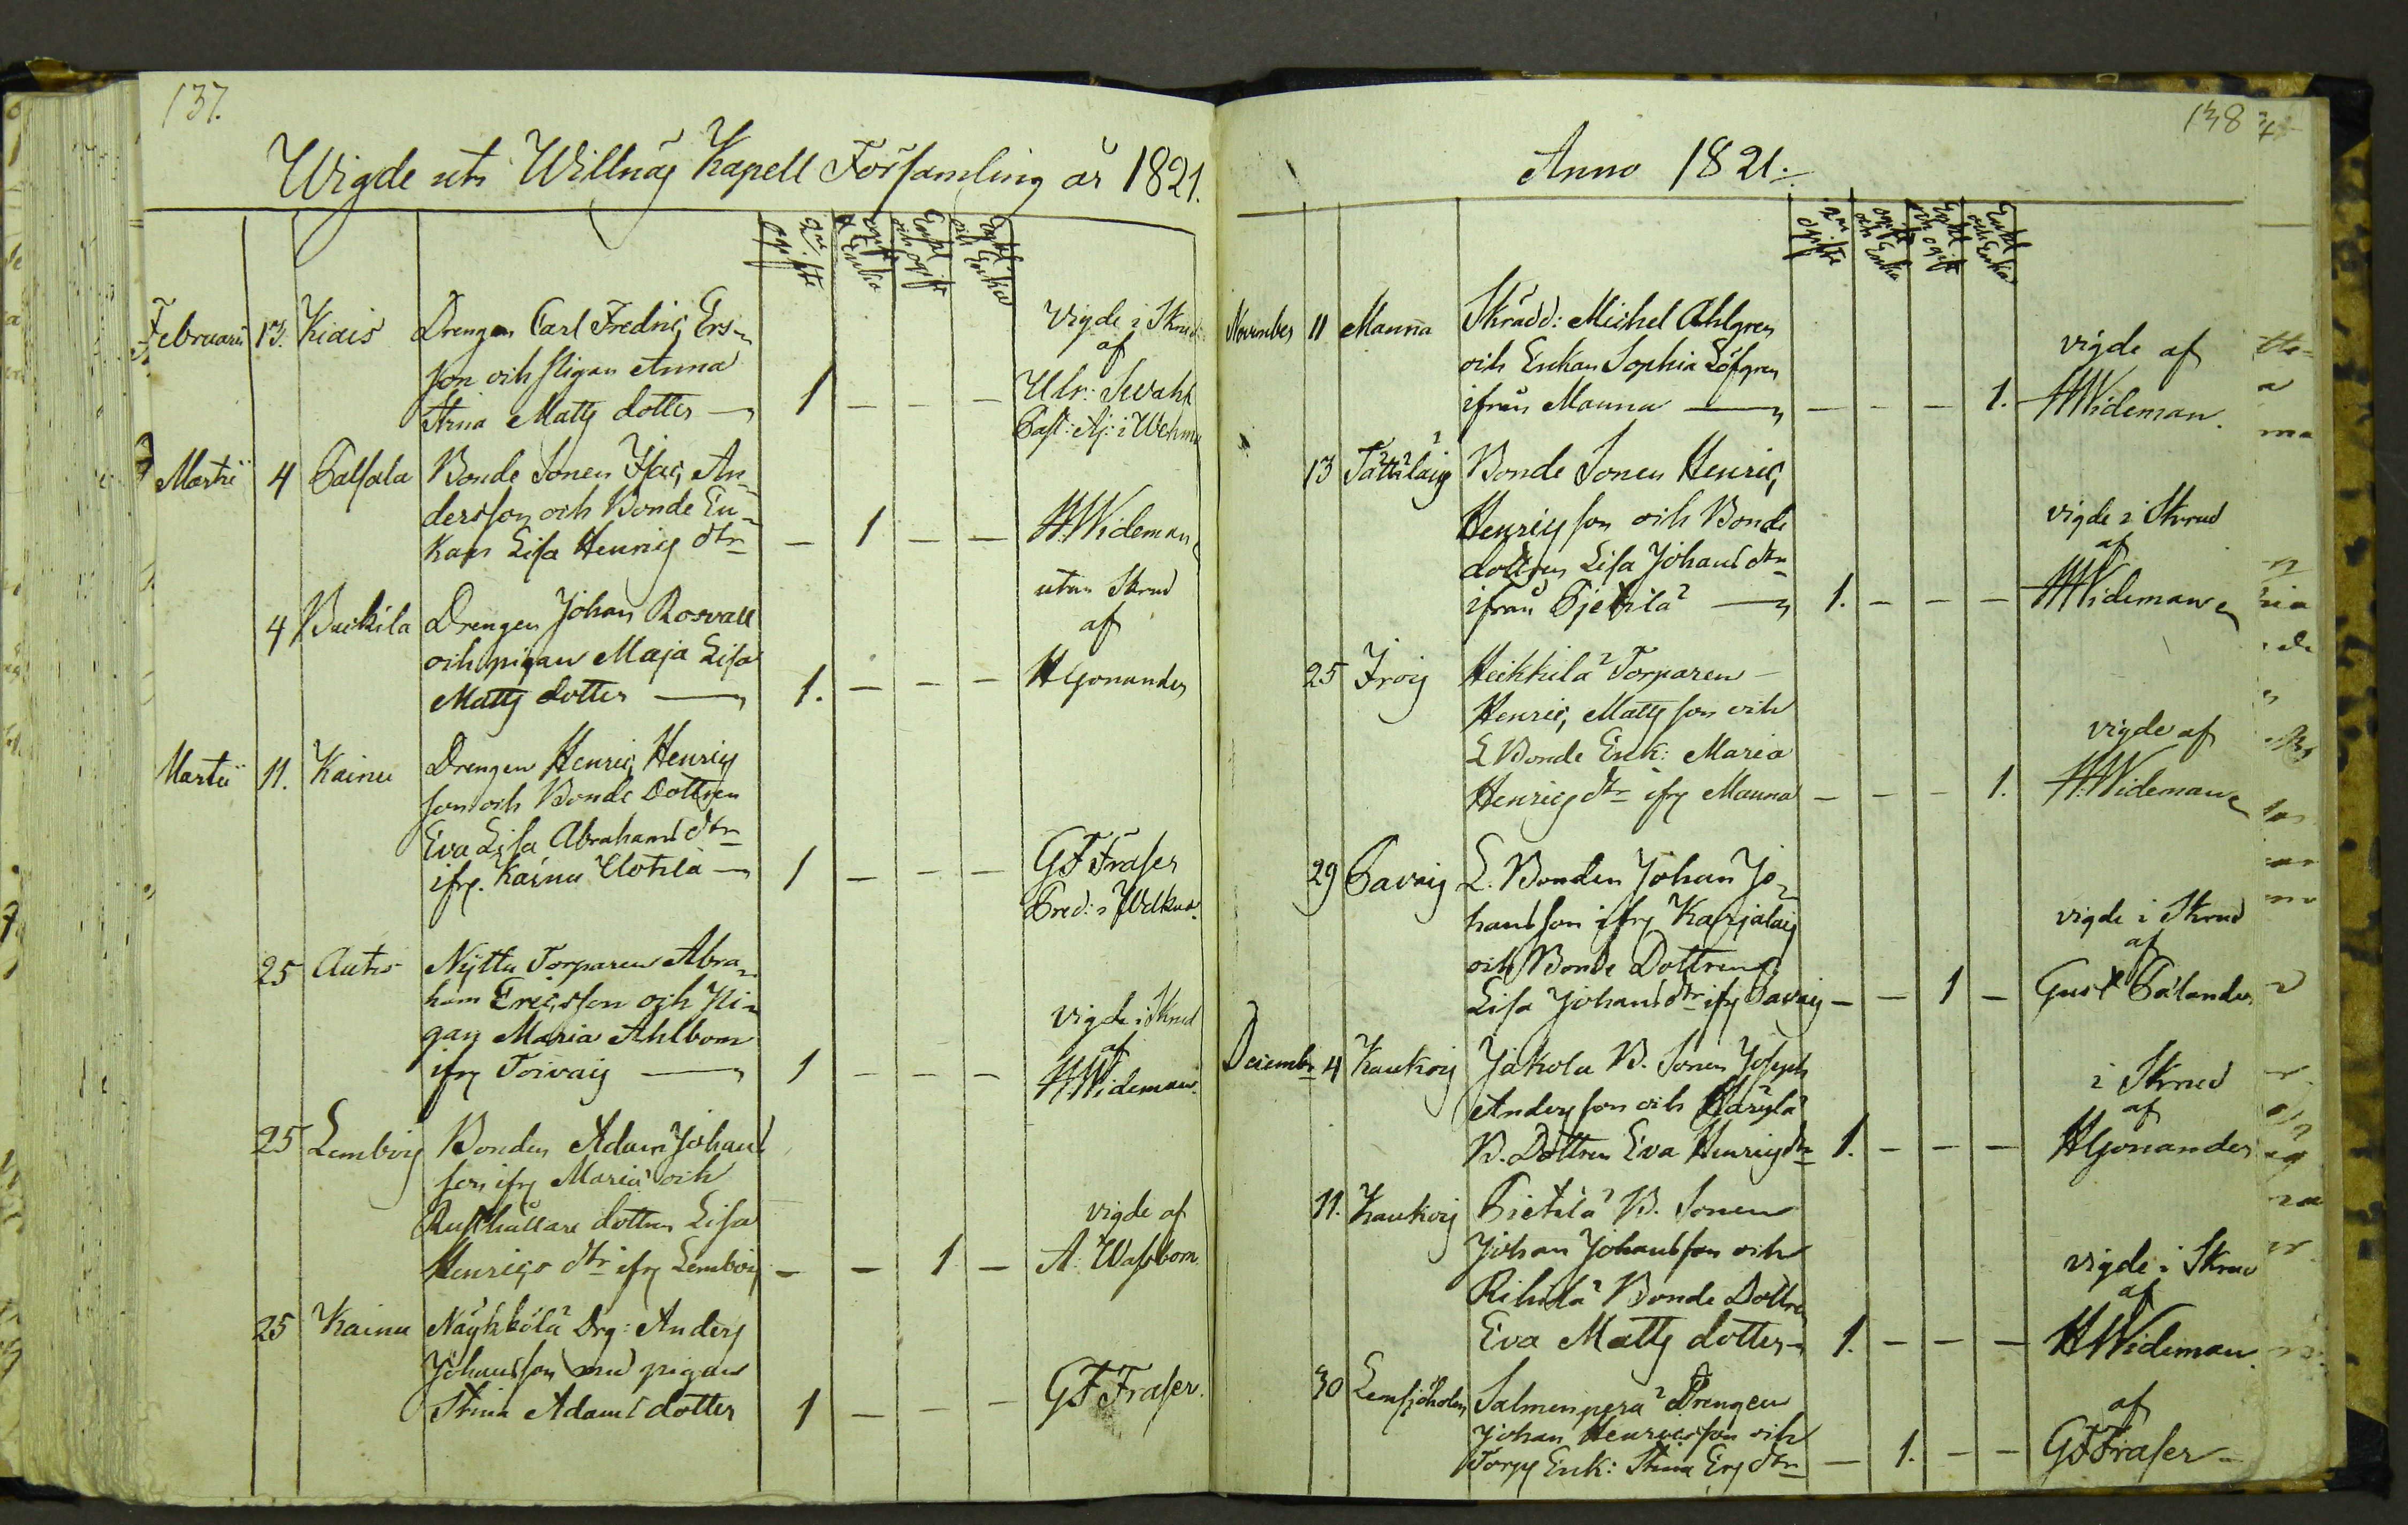 137.
Wigde uti Willnäs Kapell Församling år 1821.
2ne ogifte
ogift & Enka
Enkl och ogift
Enkl. och Enka
Februarii 13. Kiais Drengen Carl Fredric Ers-
son och pigan Anna
Stina Matts dotter — 1 — — —
Vigde i Skrud
af
Ulr: Sevahl
Past: Aj: i Wehmo
Martii 4 Palsala Bonde Sonen Isac An-
dersson och Bonde En-
kan Lisa Henrics dtr — 1 — — H. Wideman
4 Backila Drengen Johan Rosvall
och pigan Maja Lisa
Matts dotter — 1. — — —
utan Skrud
af
H Gonander
Martii 11. Kainu Drengen Henric Henrics
son och Bonde Dottren
Eva Lisa Abrahams dtr
ifr. Kainu Uotila — 1 — — —
G F Fraser
Pred: i Welkua.
25 Autis Nÿttu Torparen Abra-
ham Ericsson och Pi-
gan Maria Ahlbom
ifr Toivais — 1 — — —
vigde i Skrud
af
H Wideman.
25 Lembois Bonden Adam Johans
son ifr Maria och
Rusthållare dottren Lisa
Henrics dtr ifr Lembois — — 1 —
vigde af
A. Wassbom
25 Kainu Näyhkölä Drg: Anders
Johansson med pigan
Stina Adams dotter 1 — — — G F Fraser.
138
Anno 1821.
2ne ogifte
ogift och Enka
Enkl och ogift
Enkl och Enka
November 11 Manna Skrädd: Michel Ahlgren
och Enkan Sophia Löfgren
ifrån Manna — — — — 1.
vigde af
H Wideman.
13 Tättälais Bonde Sonen Henric
Henricsson och Bonde
dottren Lisa Johans dtr
ifrån Pjetilä — 1. — — —
vigde i Skrud
af
H Wideman
25 Irois Heikkilä Torparen
Henric Mattsson och
L Bonde Enk: Maria
Henrics dtr ifr Manna — — — 1.
vigde af
H. Wideman
29 Pavais L. Bonden Johan Jo-
hansson ifr Karjalais
och Bonde Dottren
Lisa Johans dtr ifr Pavais — — 1 —
vigde i Skrud
af
Gust Pålander
Decembr 4 Kaukois Jakola B. Sonen Joseph
Andersson och
B. Dottren Eva Henrics dtr 1. — — —
i Skrud
af
H Gonander
11. Kaukois Pietilä B. Sonen
Johan Johansson och
Rihilä Bonde Dottre
Eva Matts dotter — 1. — — —
vigde i Skrud
af
H Wideman.
30 Lemsjöholm Salmenperä Drengen
Johan Henricsson och
Torp Enk: Stina Ers dtr — 1. — —
af
G F Fraser